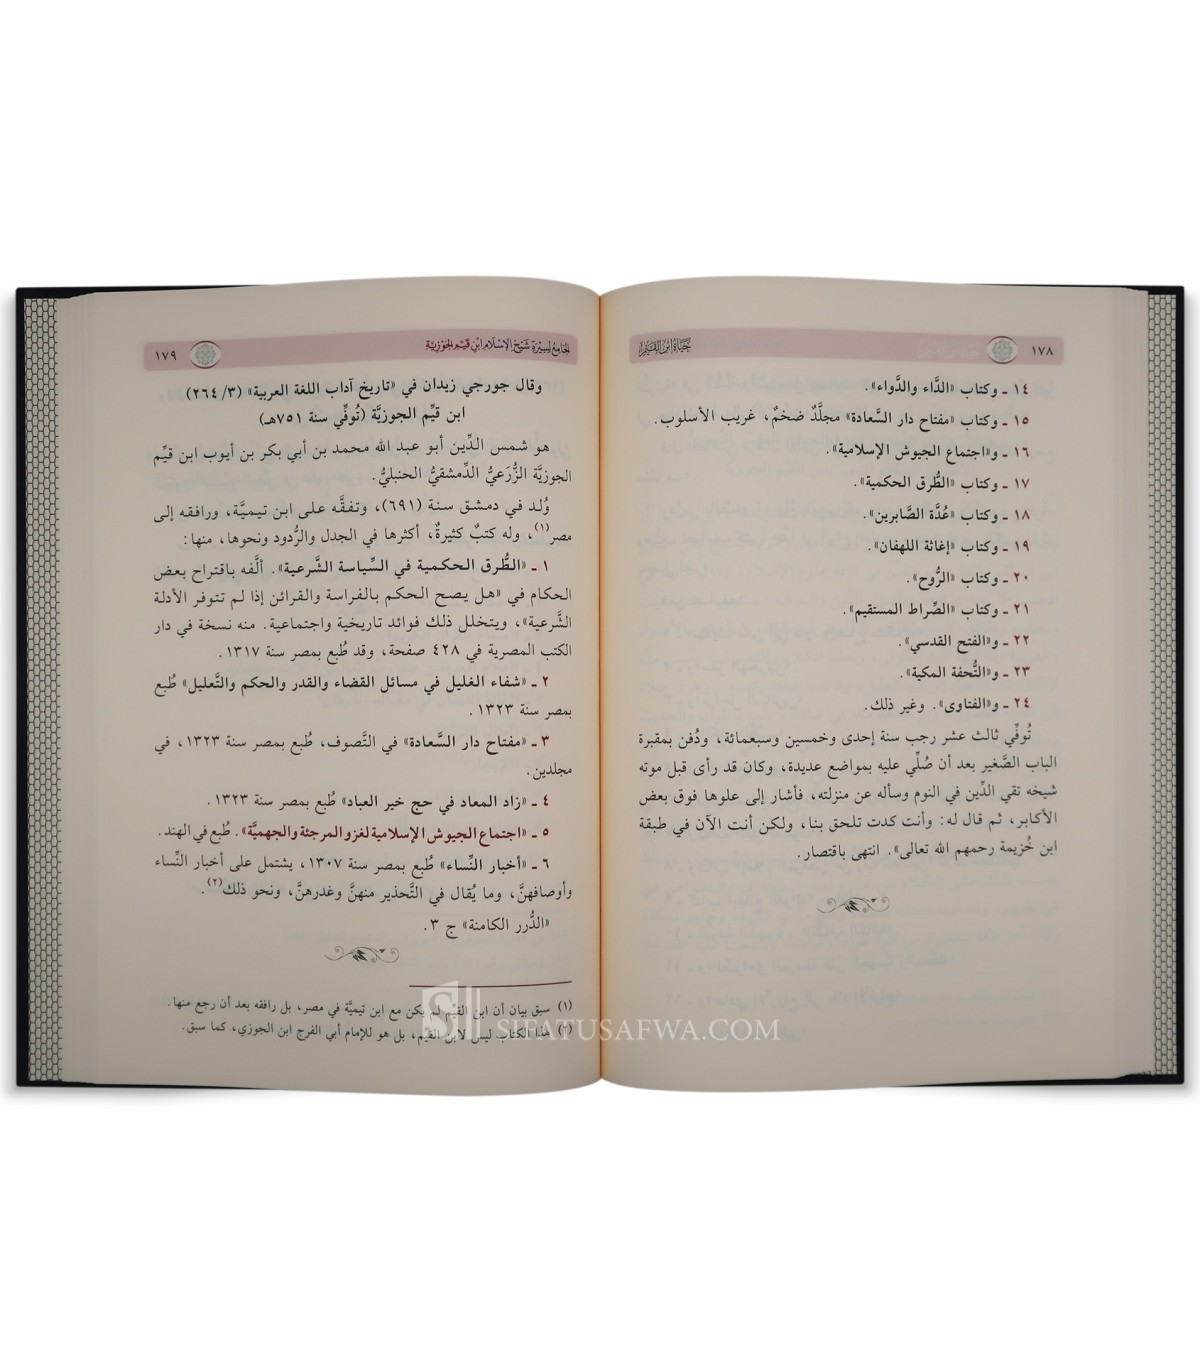 ١٧٨ حياة ابن القيم
١٤ ـ وكتاب «الدَّاء والدَّواء».
١٥ ـ وكتاب «مفتاح دار السَّعادة» مجلَّدٌ ضخمٌ، غريب الأسلوب.
١٦ ـ و«اجتماع الجيوش الإسلامية».
١٧ ـ وكتاب «الطُّرق الحكمية».
١٨ ـ وكتاب «عُدَّة الصَّابرين».
١٩ ـ وكتاب «إغاثة اللهفان».
٢٠ ـ وكتاب «الرُّوح».
٢١ ـ وكتاب «الصِّراط المستقيم».
٢٢ ـ و«الفتح القدسي».
٢٣ ـ و«التُّحفة المكية».
٢٤ ـ و«الفتاوى». وغير ذلك.
تُوفِّي ثالث عشر رجب سنة إحدى وخمسين وسبعمائة، ودُفن بمقبرة
الباب الصَّغير بعد أن صُلِّي عليه بمواضع عديدة، وكان قد رأى قبل موته
شيخه تقي الدِّين في النوم وسأله عن منزلته، فأشار إلى علوها فوق بعض
الأكابر، ثم قال له: وأنت كدت تلحق بنا، ولكن أنت الآن في طبقة
ابن خُزيمة رحمهم الله تعالى». انتهى باقتصار.
الجامع لسيرة شيخ الإسلام ابن قيم الجوزية ١٧٩
وقال جورجي زيدان في «تاريخ آداب اللغة العربية» (٣/ ٢٦٤)
ابن قيِّم الجوزيَّة (تُوفِّي سنة ٧٥١هـ)
هو شمس الدِّين أبو عبد الله محمد بن أبي بكر بن أيوب ابن قيِّم
الجوزيَّة الزُّرَعيُّ الدِّمشقيُّ الحنبليُّ.
وُلد في دمشق سنة (٦٩١)، وتفقَّه على ابن تيميَّة، ورافقه إلى
مصر(١)، وله كتبٌ كثيرةٌ، أكثرها في الجدل والرُّدود ونحوها، منها:
١ ـ «الطُّرق الحكمية في السِّياسة الشَّرعية». ألَّفه باقتراح بعض
الحكام في «هل يصح الحكم بالفراسة والقرائن إذا لم تتوفر الأدلة
الشَّرعية»، ويتخلل ذلك فوائد تاريخية واجتماعية. منه نسخة في دار
الكتب المصرية في ٤٢٨ صفحة، وقد طُبع بمصر سنة ١٣١٧.
٢ ـ «شفاء الغليل في مسائل القضاء والقدر والحكم والتَّعليل» طُبع
بمصر سنة ١٣٢٣.
٣ ـ «مفتاح دار السَّعادة» في التَّصوف، طُبع بمصر سنة ١٣٢٣، في
مجلدين.
٤ ـ «زاد المعاد في حج خير العباد» طُبع بمصر سنة ١٣٢٣.
٥ ـ «اجتماع الجيوش الإسلامية لغزو المرجئة والجهميَّة». طُبع في الهند.
٦ ـ «أخبار النِّساء» طُبع بمصر سنة ١٣٠٧، يشتمل على أخبار النِّساء
وأوصافهنَّ، وما يُقال في التَّحذير منهنَّ وغدرهنَّ، ونحو ذلك(٢).
«الدُّرر الكامنة» ج ٣.
(١) سبق بيان أن ابن القيِّم يكن مع ابن تيميَّة في مصر، بل رافقه بعد أن رجع منها.
(٢) هذا الكتاب ليس لابن القيِّم، بل هو للإمام أبي الفرج ابن الجوزي، كما سبق.
SIFATUSAFWA.COM